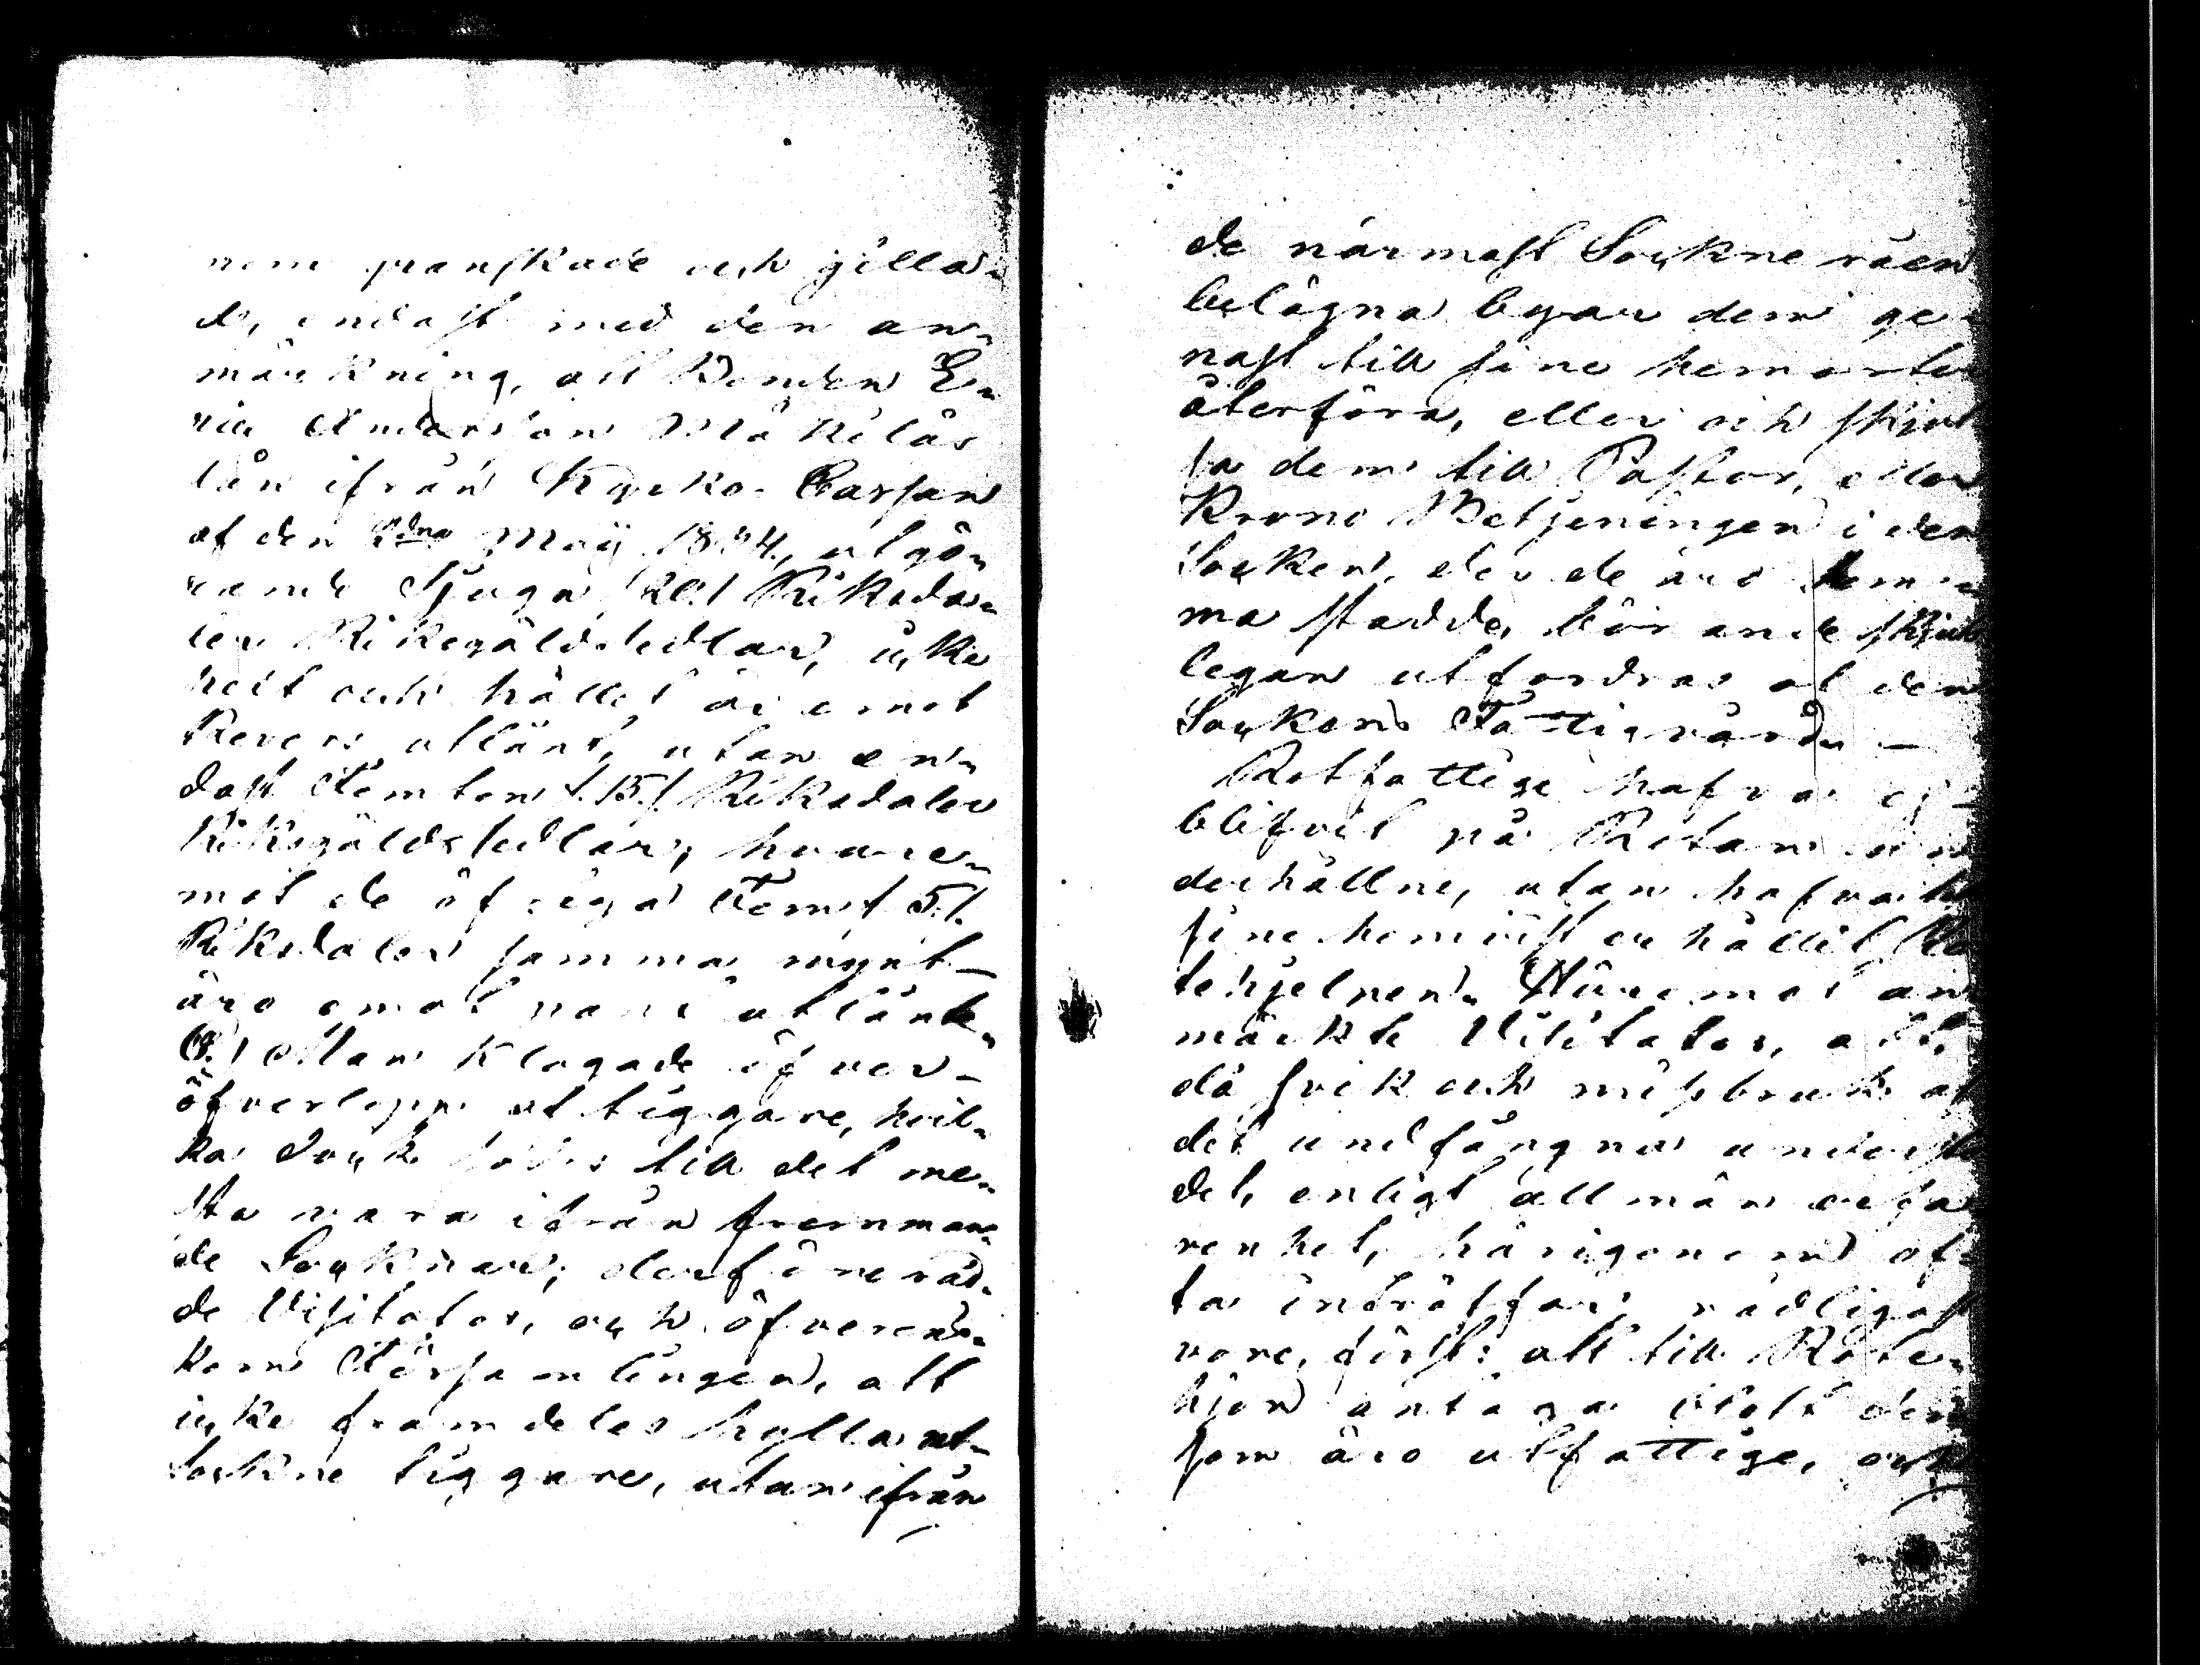 nom granskade och gilla-
de, endast med den an-
märkning, att Bonden E-
ric Andersson Mäkiläs
lån ifrån Kyrko-Cassan
af den 2dra Maji 1824, utgö-
rande Tjugu /:20:/ Riksda-
ler Riksgäldssedlar, icke
helt och hållet är emot
Revers utlånt, utan en-
dast Femton /:15:/ Riksdaler
Riksgäldssedlar, hvare-
mot de öfriga Fem /:5:/
Riksdaler samma mynt
äro emot pant utlånte.
Man klagade öfver
öfverlopp af tiggare, hvil-
ka dock sades till det me-
sta vara ifrån fremman-
de Socknar; derföre råd-
de Visitator, och öfverens-
kom Församlingen, att
icke framdeles hylla ut-
sockne tiggare, utan ifrån
de närmast Sockne råen
belägna byar dem ge-
nast till sine hemorter
återföra, eller och skjut-
sa dem till Pastor, eller
Krono Betjeningen i den
Socken, der de äro hem-
ma stadde, börande skjuts
legan utfordras af den
Sockens Fattigvård. –
Rotfattige hafva ej
blifvit på Rotan un-
derhållne, utan hafva
sine hemvist erhållit Ro-
tehjelpen. Häremot an-
märkte Visitator, att,
då svek och missbruk af
det undfångna understö-
det, enligt allmän erfa-
renhet, härigenom of-
ta inträffar, rådligast
vore, först: att till Rote-
hjon antaga blott dem
som äro utfattige, och